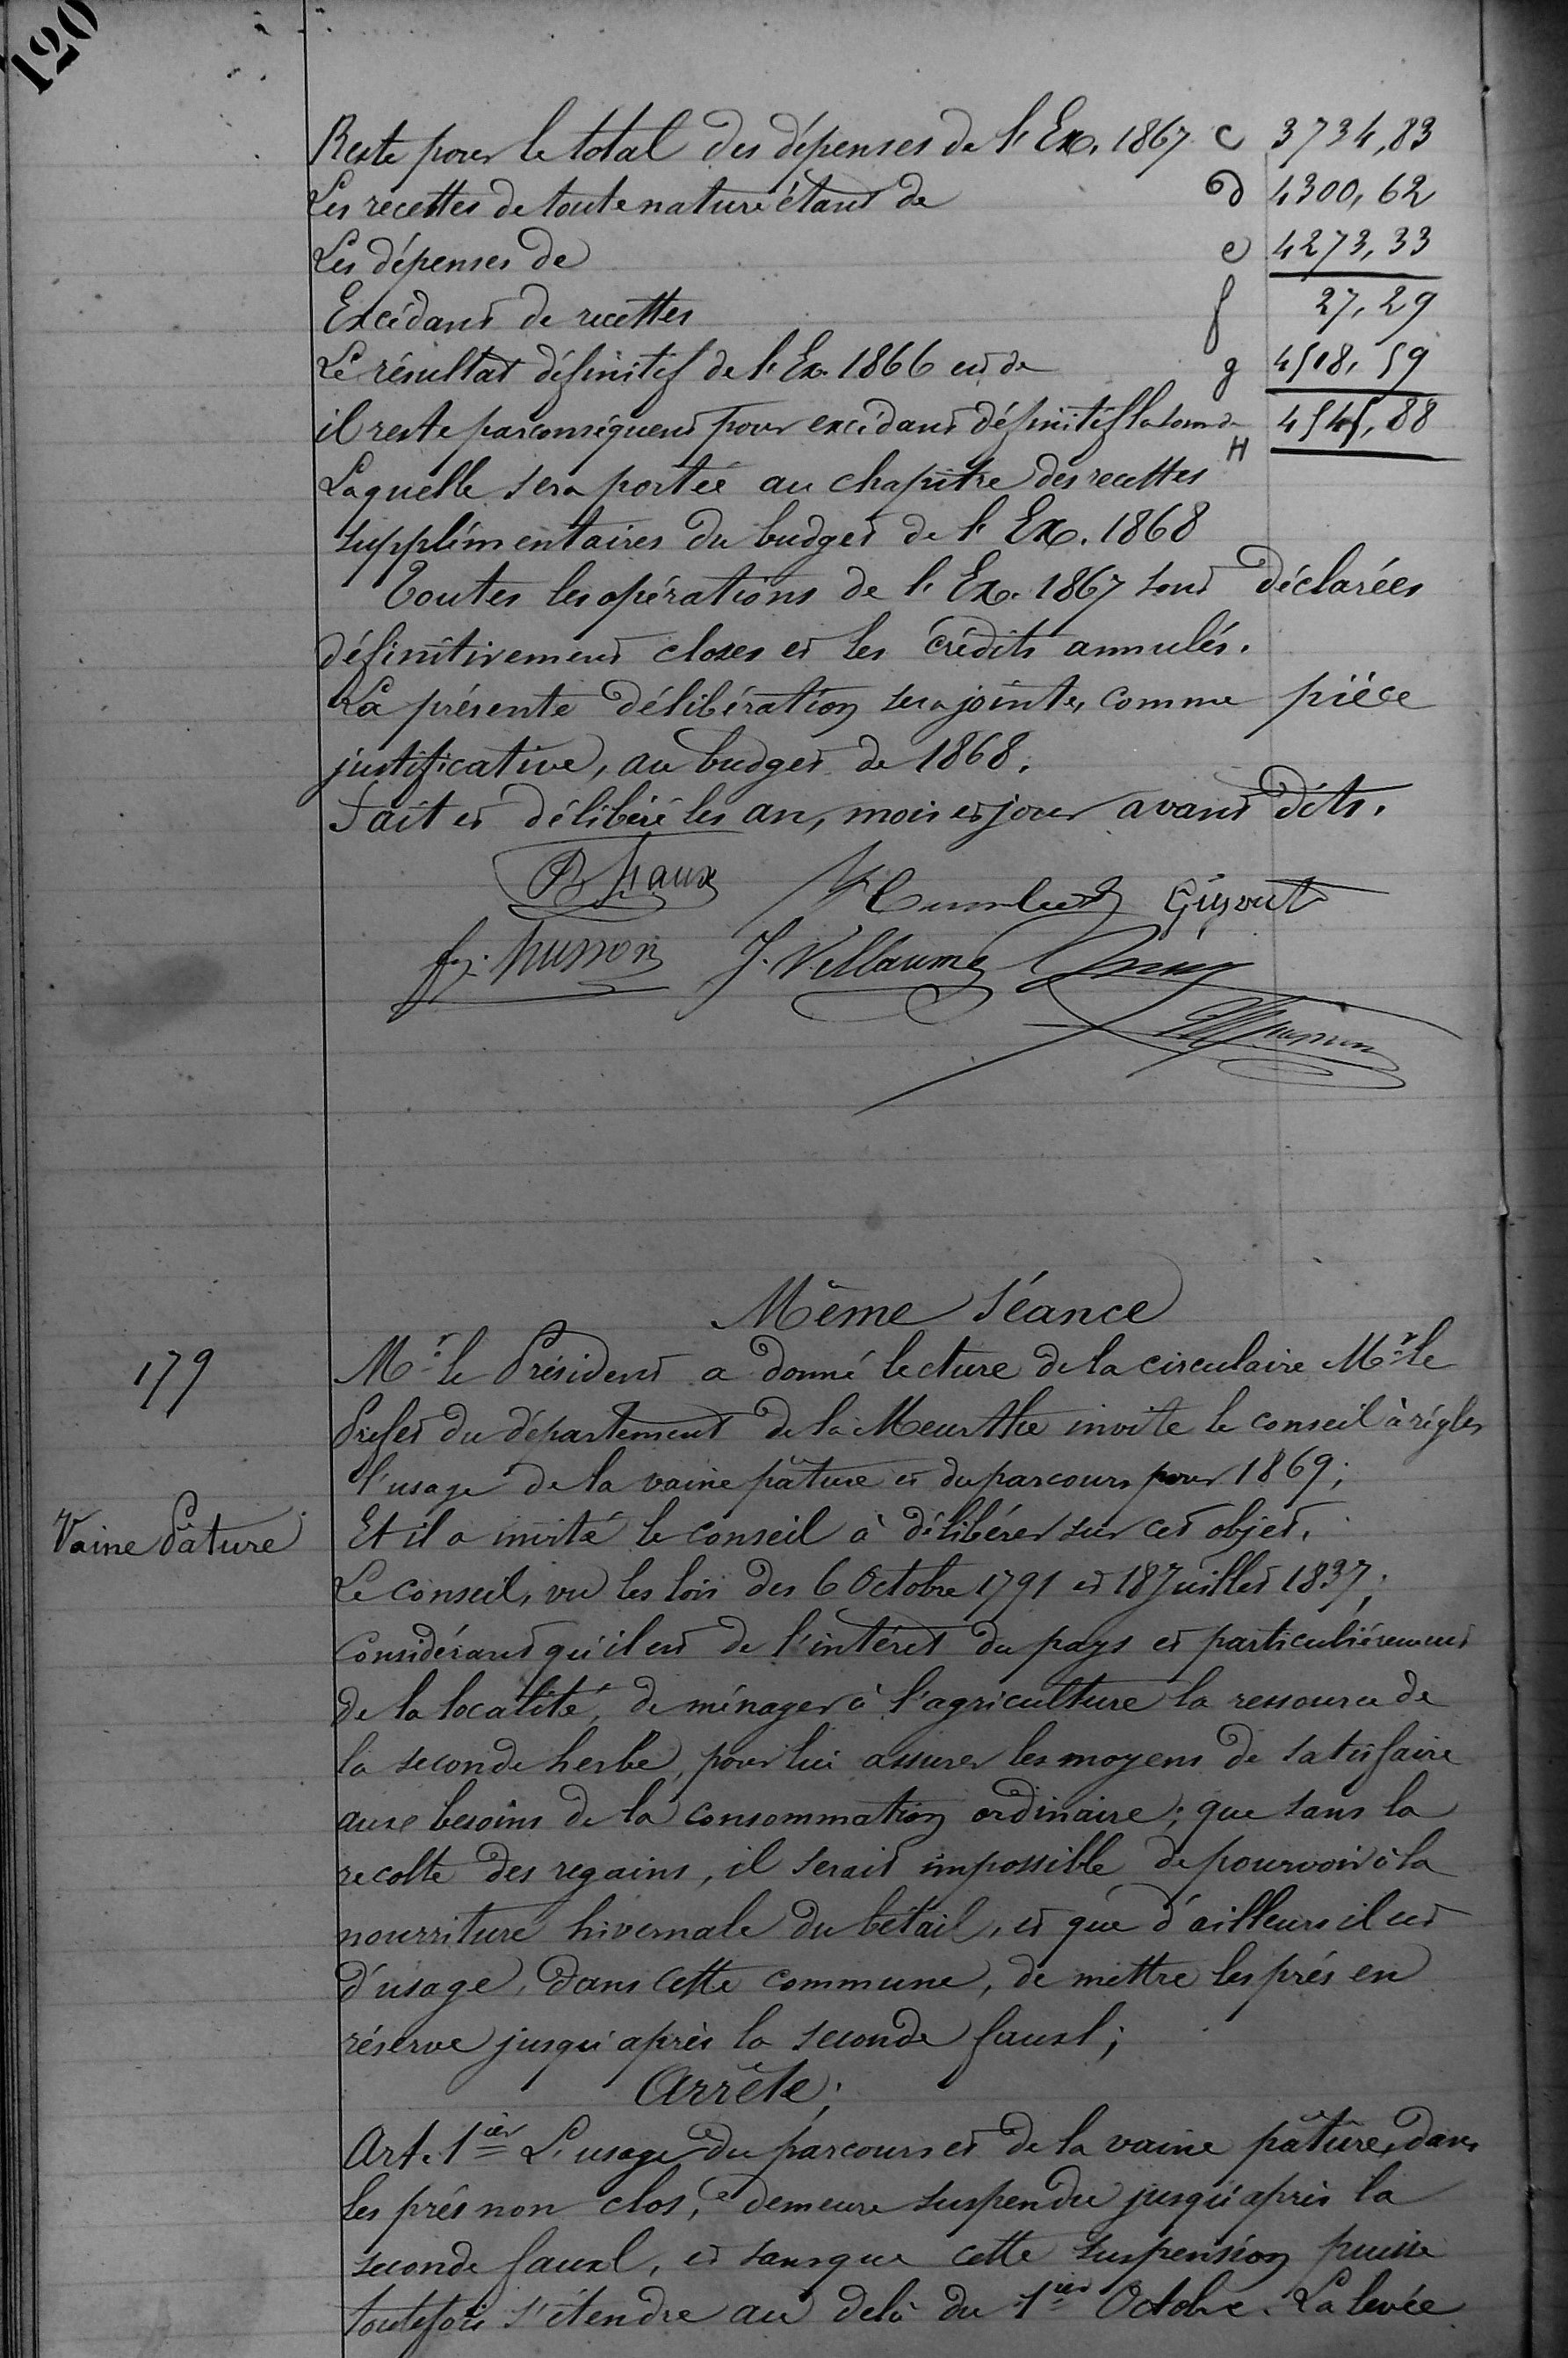 120
Reste pour le total des dépenses de l'Ex. 1867 c 3734,83
Les recettes de toute nature étant de d 4300,62
Les dépenses de e 4273,33
Excédant de recettes f 27,29
Le résultat définitif de l'Ex. 1866 est de g 4518,59
il reste parconséquent pour excédant définitif la som de H 4545,88
Laquelle sera portée au chapitre des recettes
supplémentaires du budget de l'Ex. 1868
Toutes les opérations de l'Ex. 1867 sont déclarées
définitivement closes et les crédits annulés.
La présente délibération sera jointe, comme pièce
justificative, au budget de 1868.
Fait et délibéré les an, mois et jour avant dits.
Humbert
husson J. Villaumé
Même Séance
179
Mr le Président a donné lecture de la circulaire Mr le
Préfet du département de la Meurthe invite le conseil à régler
l'usage de la vaine pâture et du parcours pour 1869;
Vaine Pâture
Et il a invité le conseil à délibérer sur cet objet.
Le conseil, vu les lois des 6 Octobre 1791 et 18 Juillet 1837;
Considérant qu'il est de l'intérêt du pays et particulièrement
de la localité, de ménager à l'agriculture la ressource de
la seconde herbe, pour lui assurer les moyens de satisfaire
aux besoins de la consommation ordinaire; que sans la
recolte des regains, il serait impossible de pourvoir à la
nourriture hivernale du bétail, et que d'ailleurs il est
d'usage, dans cette commune, de mettre les prés en
réserve jusqu'après la seconde faux;
Arrête;
Art. 1ier L'usage du parcours et de la vaine pâture, dans
les prés non clos, demeure suspendu jusqu'après la
seconde faux, et sans que cette suspension puisse
toutefois s'étendre au delà du 1ier Octobre. La levée